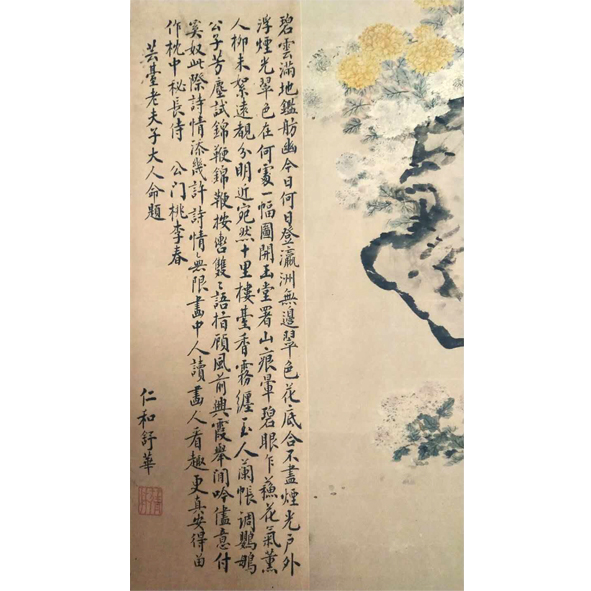 碧雲滿地鑑舫幽今日何日登瀛洲無邊翠色花底合不盡煙光戶外
浮煙光翠色在何處一幅圖開玉堂署山痕暈碧眼乍蘇花氣薰
人柳未絮遠觀分明近宛然十里樓臺香霧纏玉人蘭帳調鸚鵡
公子芳塵試錦鞭錦鞭按轡雙〻語指顧風前興霞舉閒吟儘意付
奚奴此際詩情添幾許詩情無限畫中人讀畫人看趣更真安得留
作枕中秘長侍公門桃李春
芸臺老夫子大人命題
仁和舒華